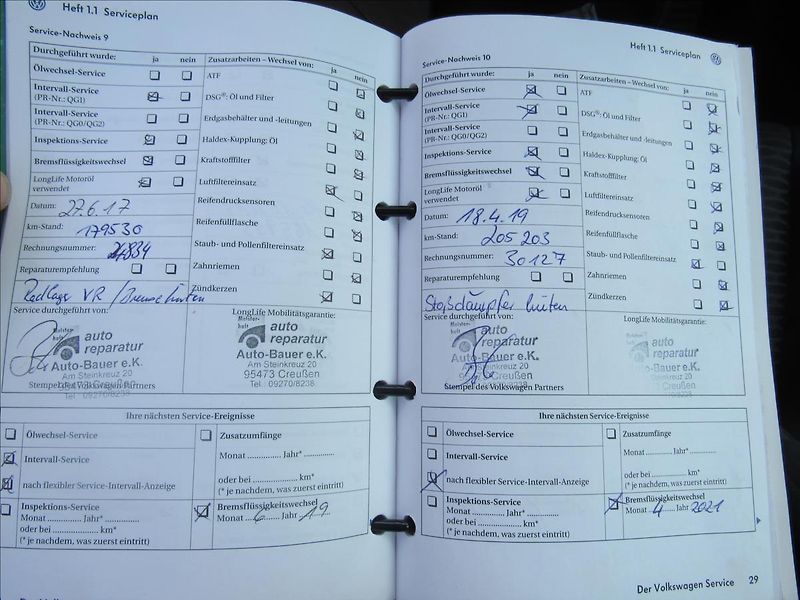 Heft 1.1 Serviceplan
Service-Nachweis 9
Durchgeführt wurde: ja nein
Ölwechsel-Service
Intervall-Service
(PR-Nr.: QG1)
Intervall-Service
(PR-Nr.: QG0/QG2)
Inspektions-Service
Bremsflüssigkeitswechsel
LongLife Motoröl
verwendet
Datum: 27.6.17
km-Stand: 179530
Rechnungsnummer:
Reparaturempfehlung
Radlager VR / Bremse hinten
Zusatzarbeiten – Wechsel von: ja nein
ATF
DSG®: Öl und Filter
Erdgasbehälter und -leitungen
Haldex-Kupplung: Öl
Kraftstofffilter
Luftfiltereinsatz
Reifendrucksensoren
Reifenfüllflasche
Staub- und Pollenfiltereinsatz
Zahnriemen
Zündkerzen
Service durchgeführt von:
Meister-
haft
auto
reparatur
Auto-Bauer e.K.
Am Steinkreuz 20
95473 Creußen
Tel.: 09270/8238
Stempel des Volkswagen Partners
LongLife Mobilitätsgarantie:
Meister-
haft
auto
reparatur
Auto-Bauer e.K.
Am Steinkreuz 20
95473 Creußen
Tel.: 09270/8238
Ihre nächsten Service-Ereignisse
Ölwechsel-Service
Intervall-Service
nach flexibler Service-Intervall-Anzeige
Inspektions-Service
Monat ............. Jahr*.............
oder bei ............. km*
(* je nachdem, was zuerst eintritt)
Zusatzumfänge
Monat ............. Jahr*.............
oder bei ............. km*
(* je nachdem, was zuerst eintritt)
Bremsflüssigkeitswechsel
Monat 6 Jahr 19
Heft 1.1 Serviceplan
Service-Nachweis 10
Durchgeführt wurde: ja nein
Ölwechsel-Service
Intervall-Service
(PR-Nr.: QG1)
Intervall-Service
(PR-Nr.: QG0/QG2)
Inspektions-Service
Bremsflüssigkeitswechsel
LongLife Motoröl
verwendet
Datum: 18.4.19
km-Stand: 205203
Rechnungsnummer: 30127
Reparaturempfehlung
Stoßdämpfer hinten
Zusatzarbeiten – Wechsel von: ja nein
ATF
DSG®: Öl und Filter
Erdgasbehälter und -leitungen
Haldex-Kupplung: Öl
Kraftstofffilter
Luftfiltereinsatz
Reifendrucksensoren
Reifenfüllflasche
Staub- und Pollenfiltereinsatz
Zahnriemen
Zündkerzen
Service durchgeführt von:
Meister-
haft
auto
reparatur
Auto-Bauer e.K.
Am Steinkreuz 20
95473 Creußen
Stempel des Volkswagen Partners
LongLife Mobilitätsgarantie:
auto
reparatur
Auto-Bauer e.K.
Am Steinkreuz 20
95473 Creußen
Ihre nächsten Service-Ereignisse
Ölwechsel-Service
Intervall-Service
nach flexibler Service-Intervall-Anzeige
Inspektions-Service
Monat ............. Jahr*.............
oder bei ............. km*
(* je nachdem, was zuerst eintritt)
Zusatzumfänge
Monat ............. Jahr*.............
oder bei ............. km*
(* je nachdem, was zuerst eintritt)
Bremsflüssigkeitswechsel
Monat 4 Jahr 2021
Der Volkswagen Service 29